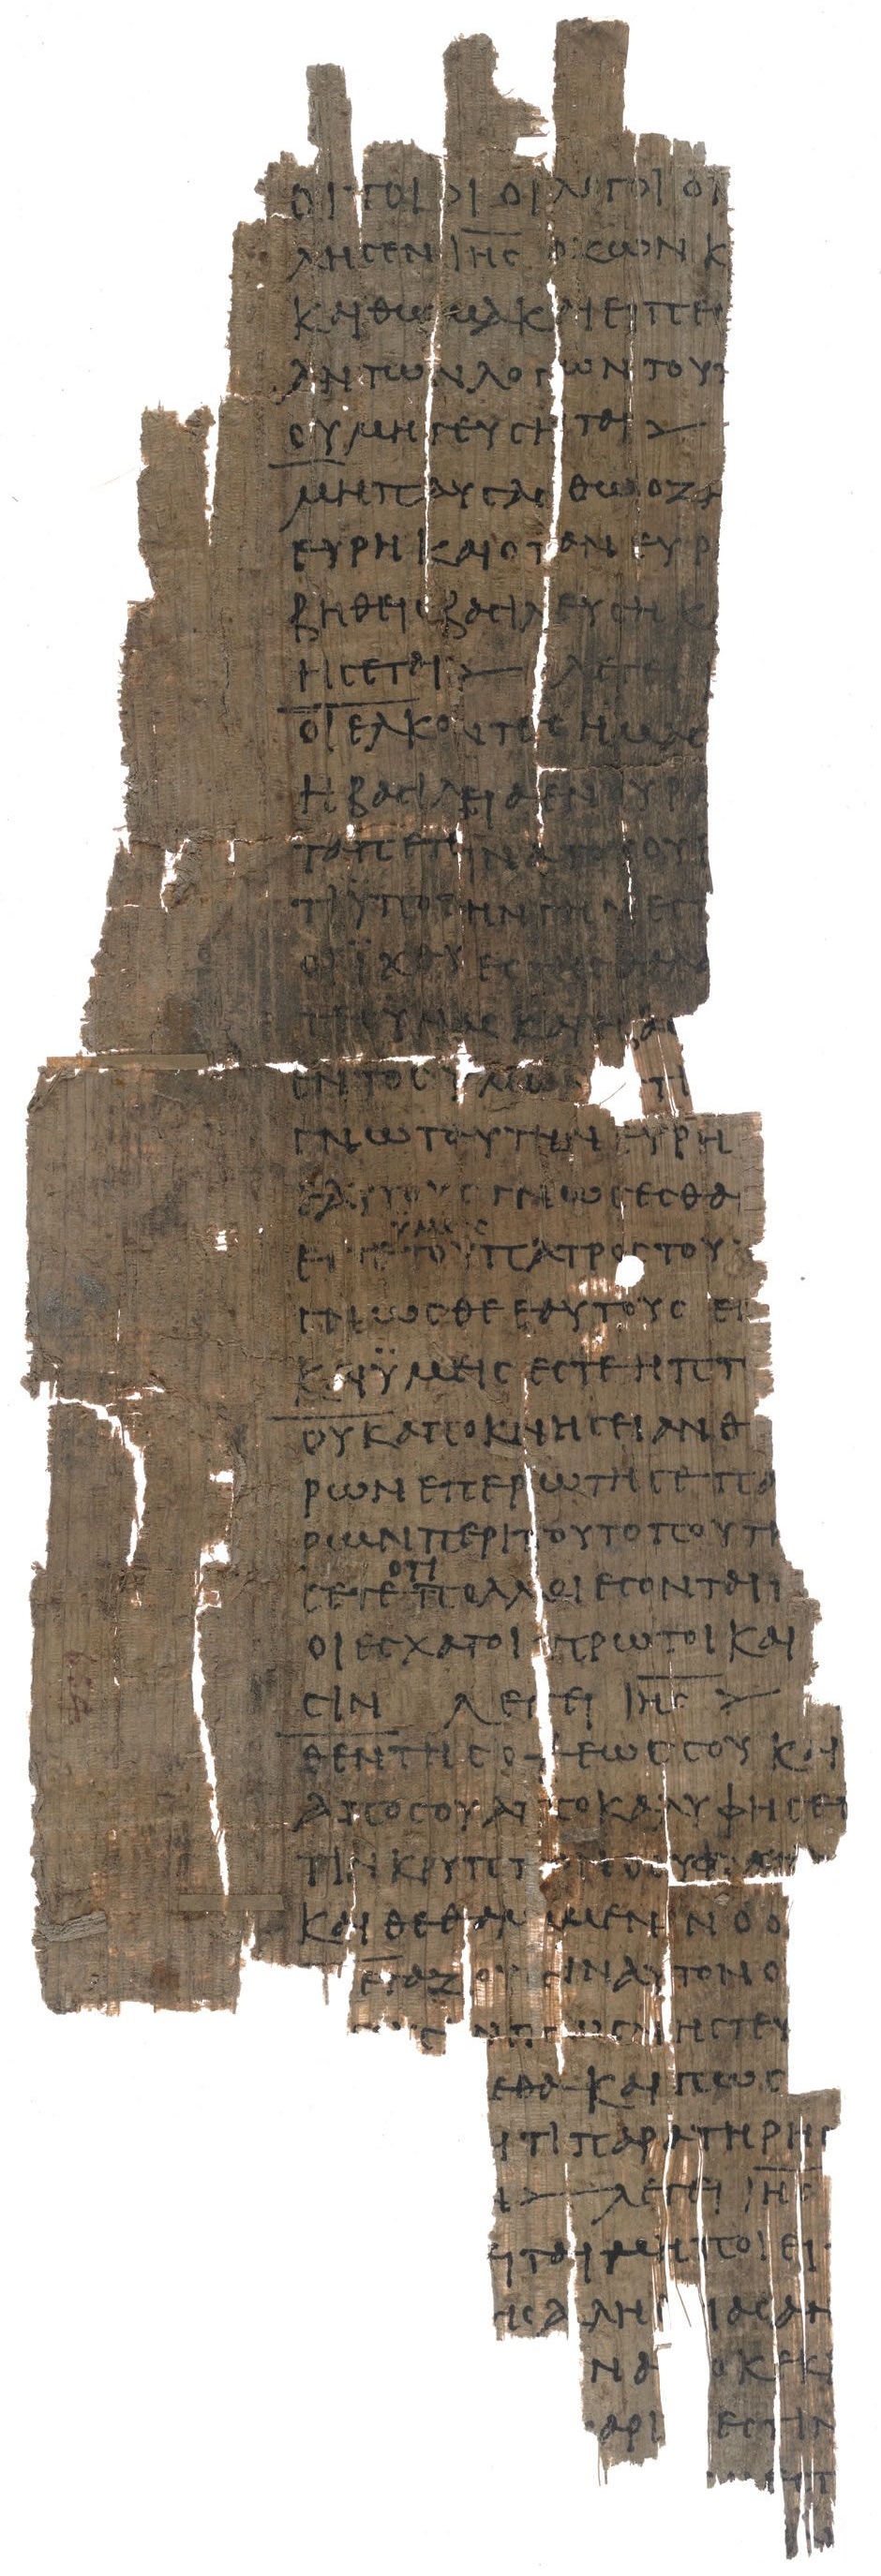 ΟΙΤΟΙ ΟΙ ΟΙ ΛΟΓΟΙ ΟΙ
ΛΗΣΕΝ ΙΗΣ Ο ΖΩΝ Κ
ΚΑΙ ΘΩΜΑ ΚΑΙ ΕΙΠΕΝ
ΑΝ ΤΩΝ ΛΟΓΩΝ ΤΟΥΤ
ΟΥ ΜΗ ΓΕΥΣΗΤΑΙ >
ΜΗ ΠΑΥΣΑΣΘΩ Ο ΖΗ
ΕΥΡΗ ΚΑΙ ΟΤΑΝ ΕΥΡ
ΒΗΘΕΙΣ ΒΑΣΙΛΕΥΣΗ Κ
ΗΣΕΤΑΙ > ΛΕΓΕΙ
ΟΙ ΕΛΚΟΝΤΕΣ ΗΜΑΣ
Η ΒΑΣΙΛΕΙΑ ΕΝ ΟΥΡΑ
ΤΑ ΠΕΤΕΙΝΑ ΤΟΥ ΟΥΡ
ΤΙ ΫΠΟ ΤΗΝ ΓΗΝ ΕΣΤ
ΟΙ ΪΧΘΥΕΣ ΤΗΣ ΘΑΛΑ
ΤΕΣ ΥΜΑΣ ΚΑΙ Η ΒΑΣ
ΕΝΤΟΣ ΥΜΩΝ ΣΤΙ
ΓΝΩ ΤΑΥΤΗΝ ΕΥΡΗ
ΕΑΥΤΟΥΣ ΓΝΩΣΕΣΘΑΙ
ΥΜΕΙΣ
ΕΣΤΕ ΤΟΥ ΠΑΤΡΟΣ ΤΟΥ
ΓΝΩΣΘΕ ΕΑΥΤΟΥΣ ΕΝ
ΚΑΙ ΫΜΕΙΣ ΕΣΤΕ Η ΠΤ
ΟΥΚ ΑΠΟΚΝΗΣΕΙ ΑΝΘ
ΡΩΝ ΕΠΕΡΩΤΗΣΕ ΠΑ
ΡΩΝ ΠΕΡΙ ΤΟΥ ΤΟΠΟΥ ΤΗ
ΟΤΙ
ΣΕΤΕ ΠΟΛΛΟΙ ΕΣΟΝΤΑΙ Π
ΟΙ ΕΣΧΑΤΟΙ ΠΡΩΤΟΙ ΚΑΙ
ΣΙΝ ΛΕΓΕΙ ΙΗΣ >
ΘΕΝ ΤΗΣ ΟΨΕΩΣ ΣΟΥ ΚΑΙ
ΑΠΟ ΣΟΥ ΑΠΟΚΑΛΥΦΗΣΕΤ
ΤΙΝ ΚΡΥΠΤΟΝ Ο ΟΥ ΦΑΝΕ
ΚΑΙ ΘΕΘΑΜΜΕΝΟΝ Ο Ο
ΕΤΑΖΟΥΣΙΝ ΑΥΤΟΝ Ο
ΓΟΥΣΙΝ ΠΩΣ ΝΗΣΤΕΥ
ΕΘΑ ΚΑΙ ΠΩΣ
Ι ΤΙ ΠΑΡΑΤΗΡΗΣ
Ν > ΛΕΓΕΙ ΙΗΣ
ΕΙΤΑΙ ΜΗ ΠΟΙΕΙΤ
ΗΣ ΑΛΗΘΕΙΑΣ ΑΝ
Ν Α ΟΚΕΚΡ
ΚΑΡΙ ΕΣΤΙΝ